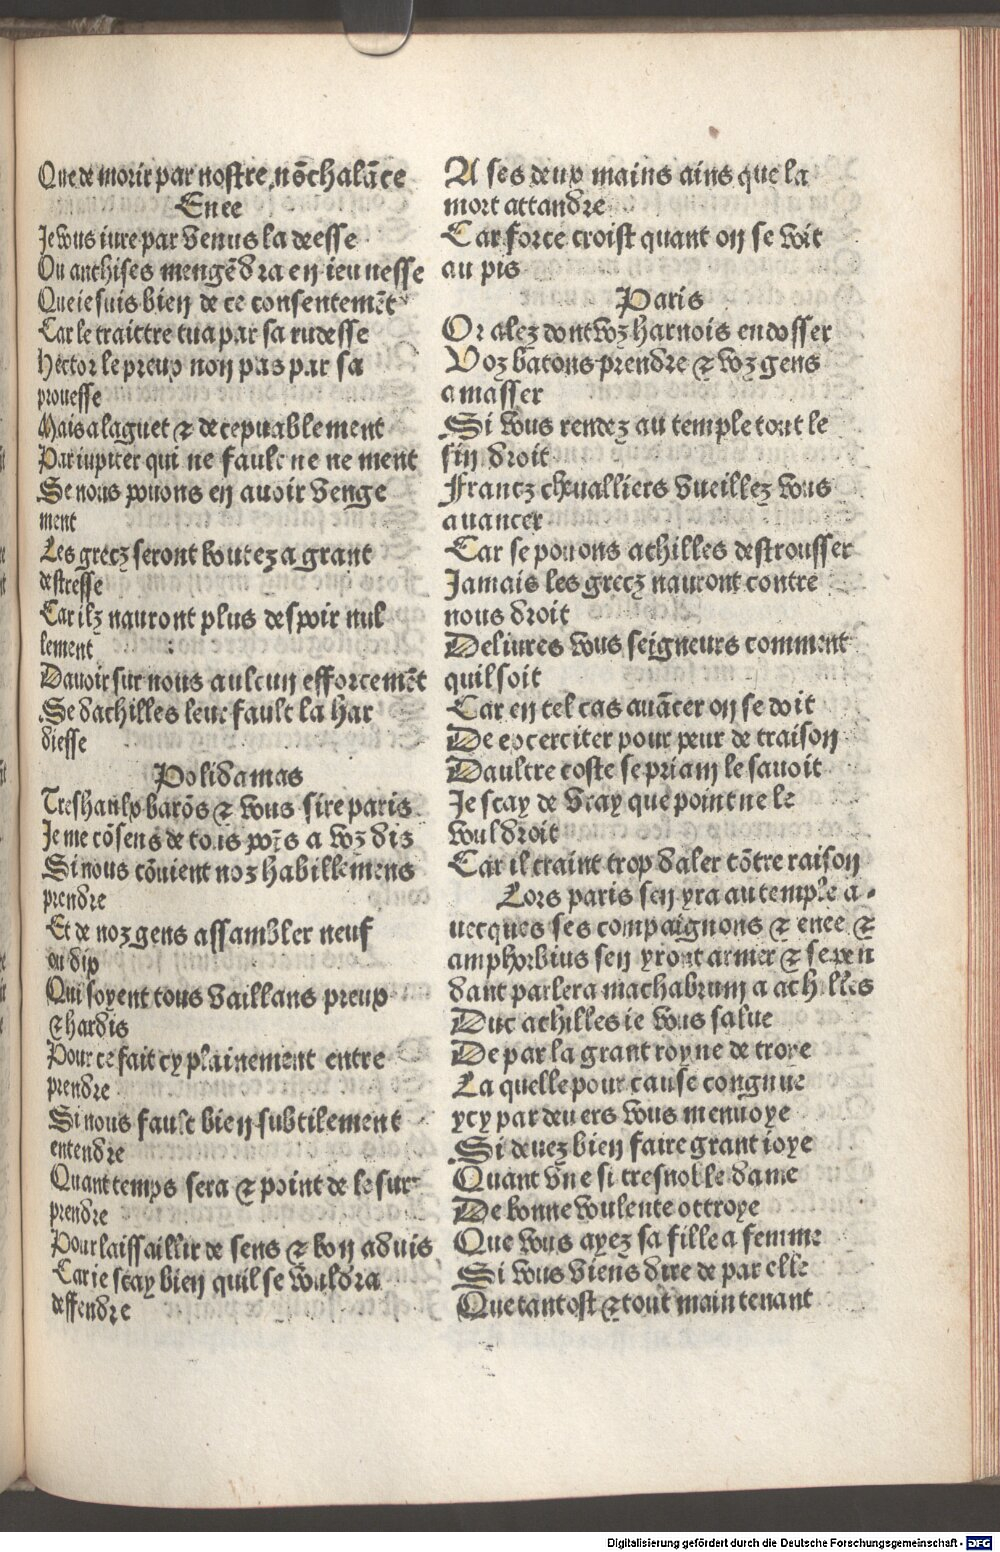 Que de morir par nostre nõchalãce
Enee
Je vous iure par venus la deesse
Ou anthises mengẽdra en ieunesse
Que ie suis bien de ce consentemẽt
Car le traittre tua par sa rudesse
Hector le preux non pas par sa
prouesse
Mais alaguet ⁊ decepuablement
Par iupiter qui ne faulc ne ne ment
Se nous pouons en auoir venge
ment
Les grecz seront boutez a grant
destresse
Car ilz nauront plus despoir nul
lement
Dauoir sur nous aulcun efforcemẽt
Se dachilles leur fault la har
diesse
Polidamas
Treshaulx barõs ⁊ vous sire paris
Je me cõsens de tous pors a voz dis
Si nous cõuient noz habillemens
prendre
Et de noz gens assambler neuf
ou dix
Qui soyent tous vaillans preux
⁊ hardis
Pour ce fait cy plainement entre
prendre
Si nous fault bien subtilement
entendre
Quant temps sera ⁊ point de le sur
prendre
Pour laissaillir de sens ⁊ bon aduis
Car ie scay bien quil se vouldra
deffendre
A ses deux mains ains que la
mort attandre
Car force croist quant on se voit
au pis
Paris
Or alez dont voz harnois endosser
Voz batons prendre ⁊ voz gens
amasser
Si vous rendez au temple tout le
fin droit
Francz cheualliers vueillez vous
auancer
Car se pouons achilles destrousser
Jamais les grecz nauront contre
nous droit
Deliures vous seigneurs comment
quil soit
Car en tel cas auãcer on se doit
De exerciter pour peur de traison
Daultre coste se priam le sauoit
Je scay de vray que point ne le
vouldroit
Car il craint trop daler cõtre raison
Lors paris sen yra au temple a
uecques ses compaignons ⁊ enee ⁊
amphorbius sen yront armer ⁊ se pen
dant parlera machabrum a achilles
Duc achilles ie vous salue
De par la grant royne de troye
La quelle pour cause congnue
ycy par deuers vous menuoye
Si deuez bien faire grant ioye
Quant vne si tresnoble dame
De bonne voulente ottroye
Que vous ayez sa fille a femme
Si vous viens dire de par elle
Que tantost ⁊ tout maintenant
Digitalisierung gefördert durch die Deutsche Forschungsgemeinschaft - DFG